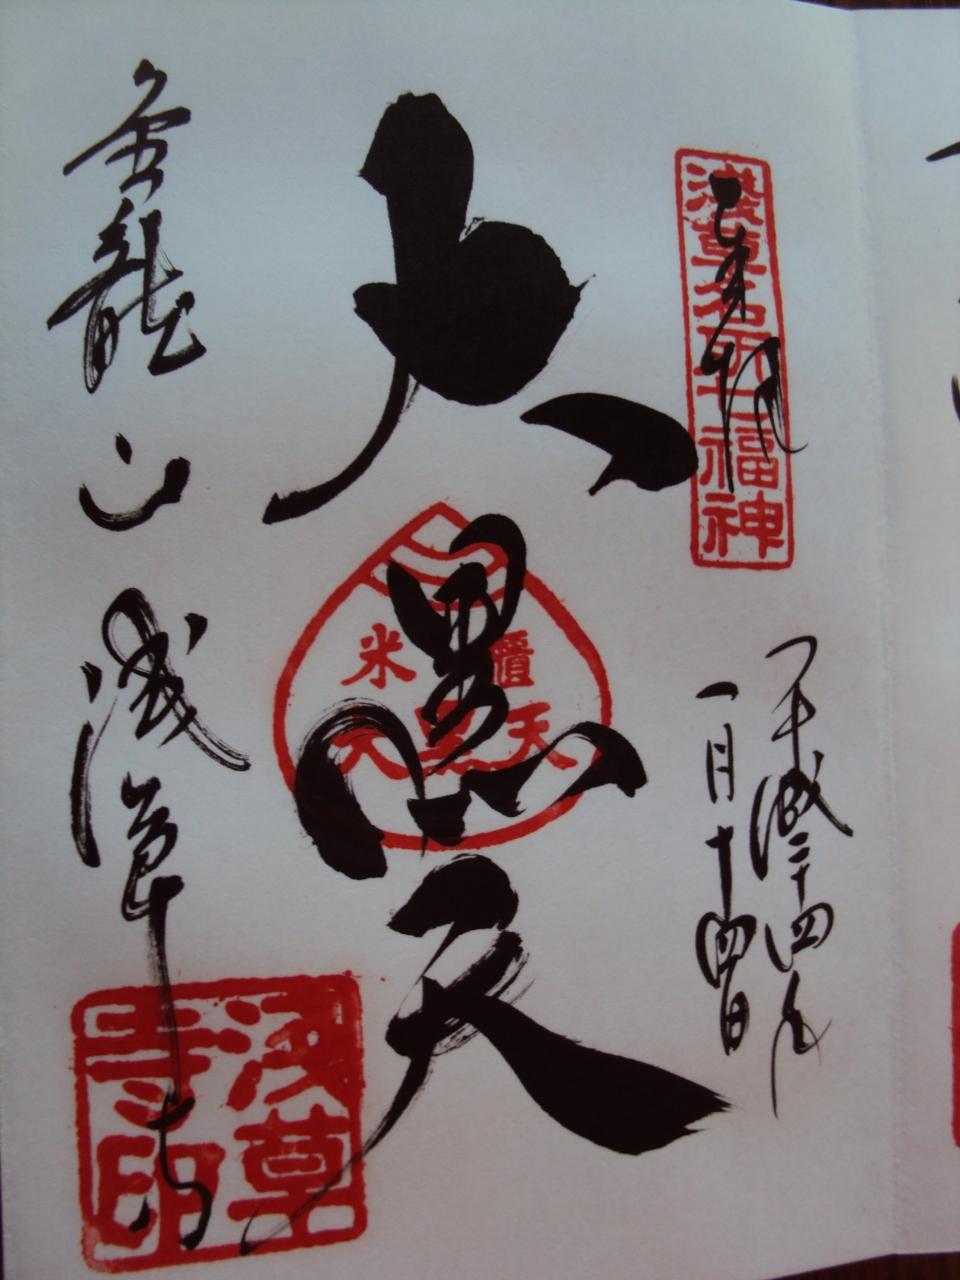 淺草名所七福神
奉拝
平成二十四年
一月十四日
大黒天
米櫃
大黒天
金龍山
浅草寺
浅草
寺印